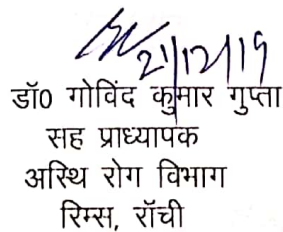 21/12/19
डॉ0 गोविंद कुमार गुप्ता
सह प्राध्यापक
अस्थि रोग विभाग
रिम्स, राँची